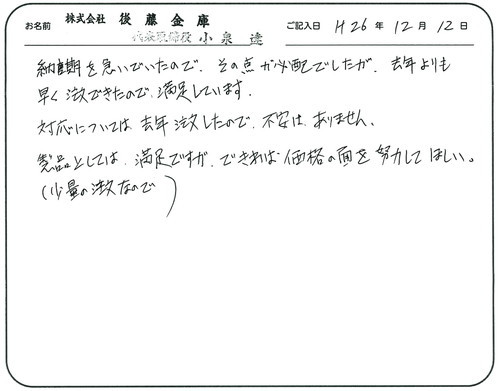 お名前 株式会社 後藤金庫 ご記入日 H26年12月12日
代表取締役 小泉 達
納期を急いでいたので、その点が心配でしたが、去年よりも
早く注文できたので、満足しています。
対応については、去年注文したので、不安は、ありません。
製品としては、満足ですが、できれば価格の面を努力してほしい。
(少量の注文なので)